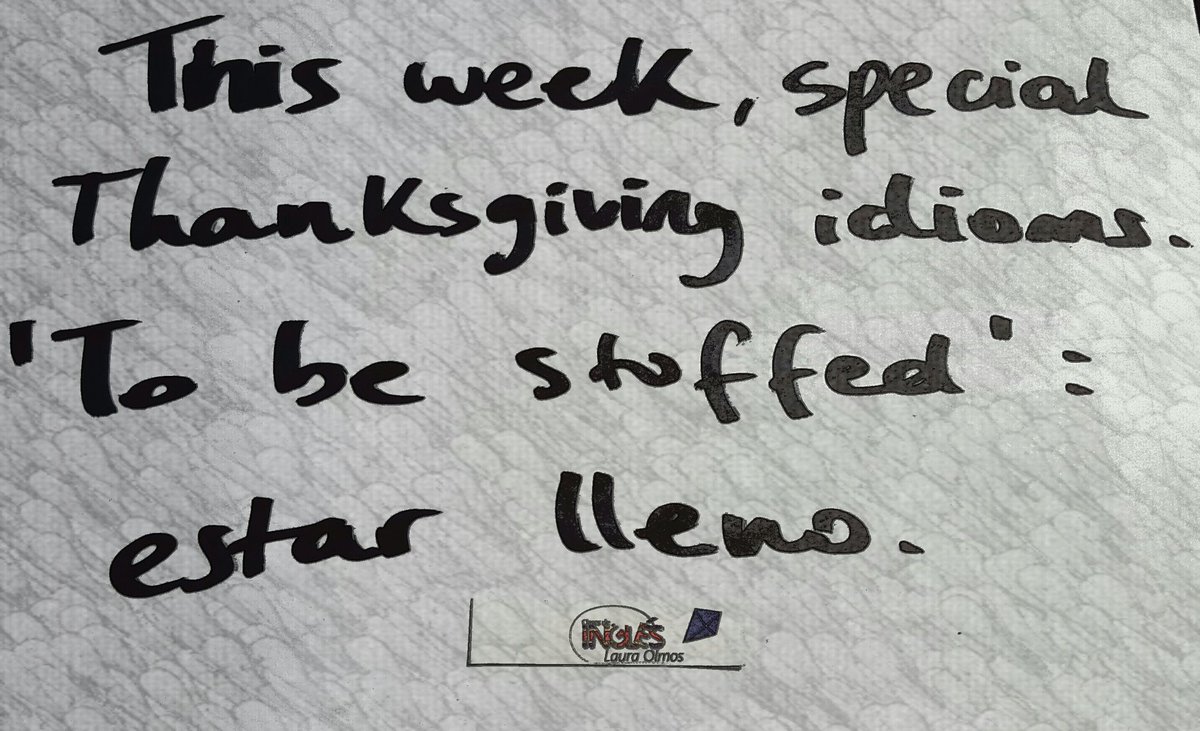 This week, special
Thanksgiving idioms.
'To be stoffed':
estar lleno.
INGLÉS
Laura Olmos